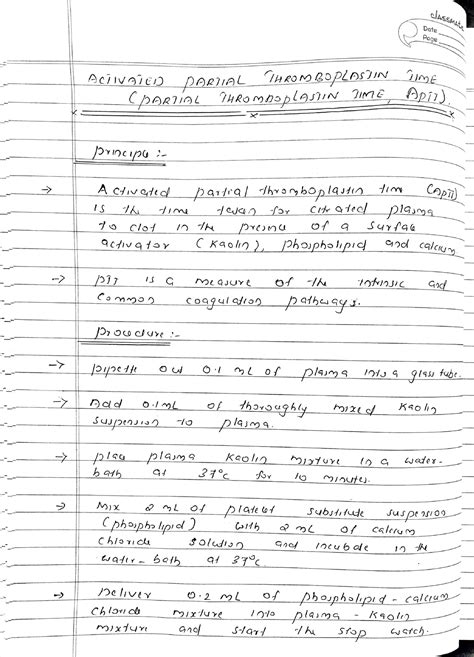 classmate
Date
Page
ACTIVATED PARTIAL THROMBOPLASTIN TIME
(PARTIAL THROMBOPLASTIN TIME, APTT).
Principle :-
→ Activated partial thromboplastin tim (APTT)
is the time taken for citrated plasma
to clot in the presence of a surface
activator (Kaolin), phospholipid and calcium
→ PTT is a measure of the intrinsic and
common coagulation pathways.
Procedure :-
→ pipette out 0.1 mL of plasma into a glass tube.
→ Add 0.1 mL of thoroughly mixed Kaolin
suspension to plasma.
→ place plasma Kaolin mixture in a water-
bath at 37°c for 10 minutes.
→ Mix 2 mL of platelet substitute suspension
(phospholipid) with 2 mL of calcium
chloride solution and incubate in the
water-bath at 37°c
→ Deliver 0.2 mL of phospholipid-calcium
chloride mixture into plasma-kaolin
mixture and start the stop watch.